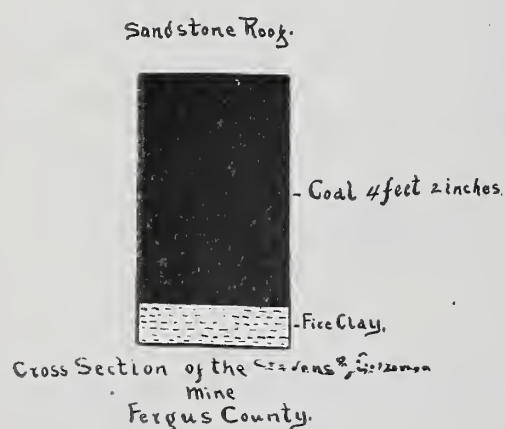 Sandstone Roof.
Coal 4 feet 2 inches.
Fire Clay.
Cross Section of the
mine
Fergus County.